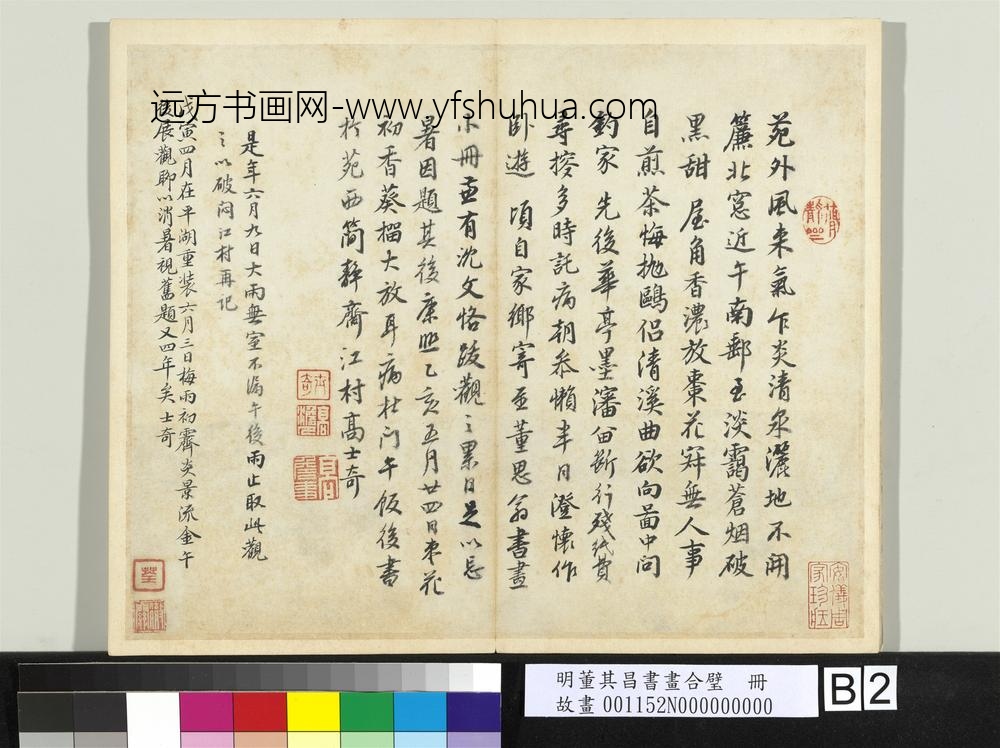 远方书画网-www.yfshuhua.com
苑外風来氣乍炎清泉灑地不開
簾北窓近午南郵至淡靄蒼烟破
黑甜 屋角香濃放棗花寂無人事
自煎茶悔抛鷗侣清溪曲欲向畵中问
釣家 先後華亭墨瀋留斷行殘紙費
尋搜多時託病朝參懶半日澄懷作
卧遊 頃自家鄉寄至董思翁書畫
小冊並有沈文恪跋觀之累日足以忘
暑因題其後康熙乙亥五月廿四日棗花
初香葵榴大放耳病杜门午飯後書
於苑西简靜齋江村高士奇
是年六月九日大雨無室不漏午後雨止取此觀
之以破闷江村再记
戊寅四月在平湖重装六月三日梅雨初霽炎景流金午
後展觀聊以消暑視舊題又四年矣士奇
明董其昌書畫合璧 冊
故畫 001152N000000000
B2